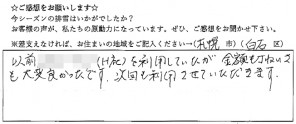 ☆ご感想をお願いします☆
今シーズンの排雪はいかがでしたか?
お客様の声が、私たちの原動力になっています。ぜひ、ご感想をお聞かせ下さい。
※差支えなければ、お住まいの地域をご記入ください→(札幌 市)(白石 区)
以前 (H社)を利用していたが 金額も
も大変良かったです。次回も利用させていただきます。